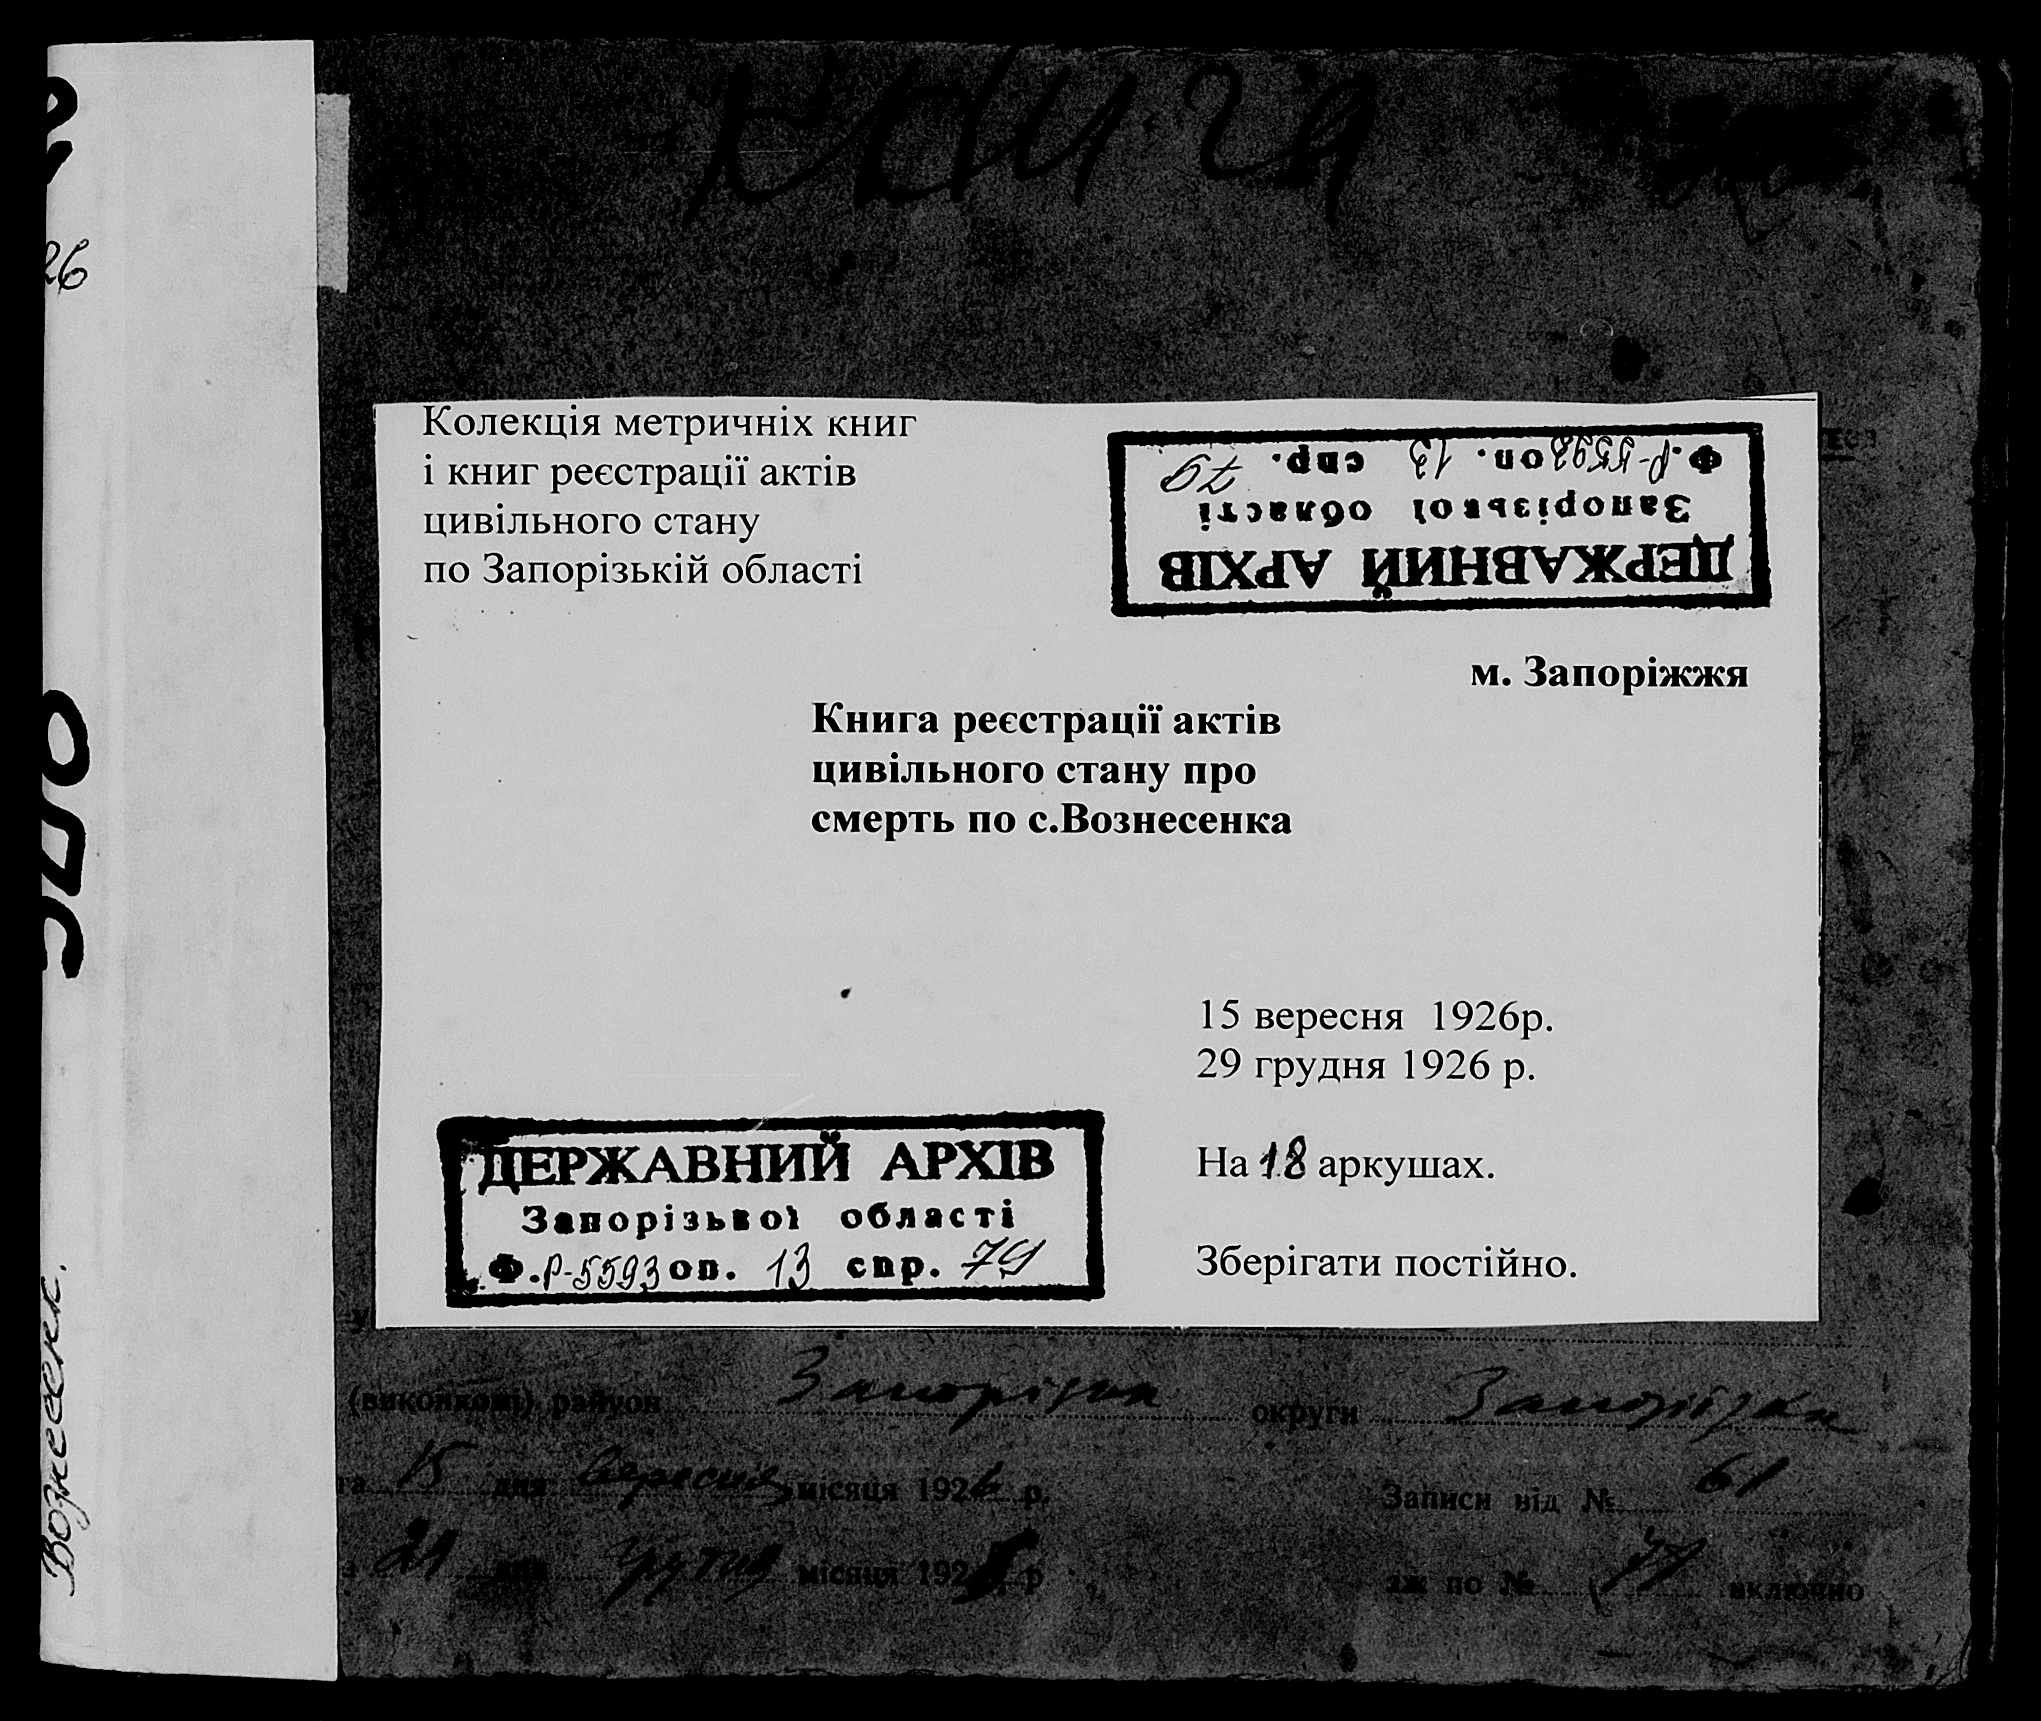 Книга
26
Колекція метричніх книг
і книг реєстрації актів
цивільного стану
по Запорізькій області
ДЕРЖАВНИЙ АРХІВ
Запорізької області
Ф.Р-5593 оп. 13 спр. 79
м. Запоріжжя
Книга реєстрації актів
цивільного стану про
смерть по с.Вознесенка
15 вересня 1926р.
29 грудня 1926 р.
На 18 аркушах.
Зберігати постійно.
ДЕРЖАВНИЙ АРХІВ
Запорізької області
Ф.Р-5593 оп. 13 спр. 79
(виконкомі) району Запорізьк округи Запорізьк
15 дня вересня місяця 1926 р. Записи від № 61
дня грудня місяця 192 р. аж по № 77 включно
Вознесенк.